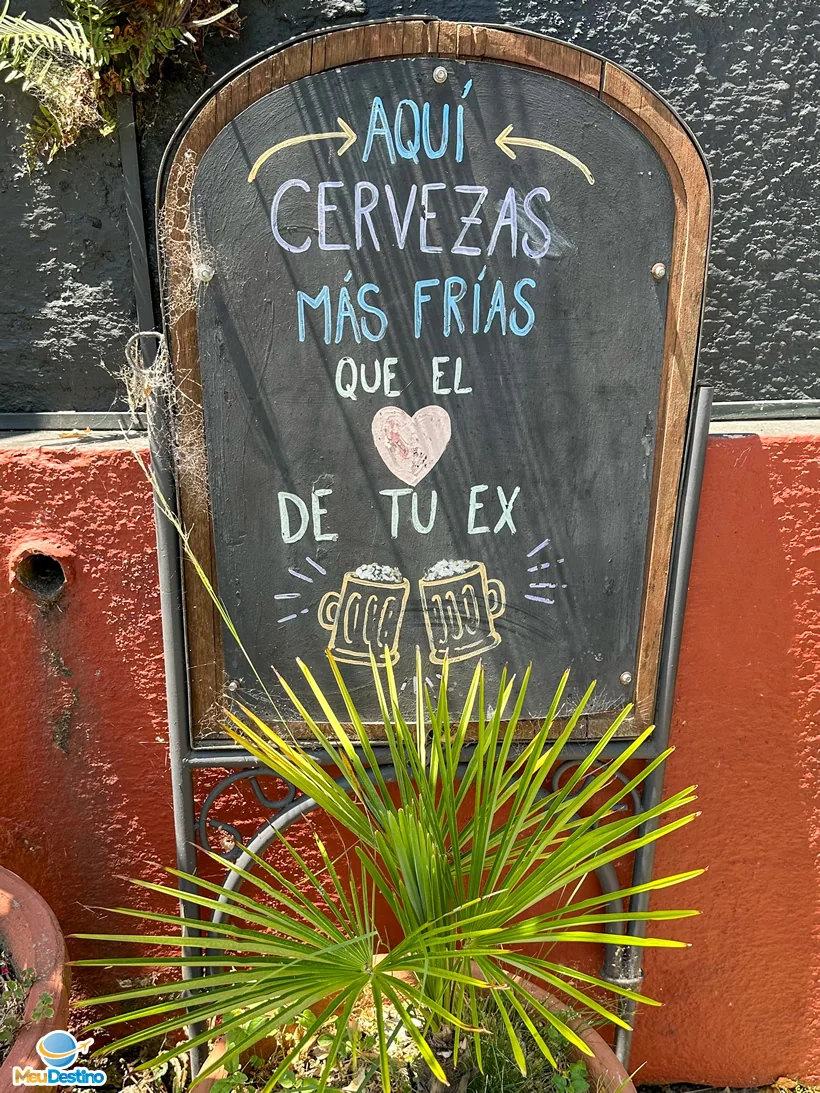 AQUÍ
CERVEZAS
MÁS FRÍAS
QUE EL
DE TU EX
MeuDestino